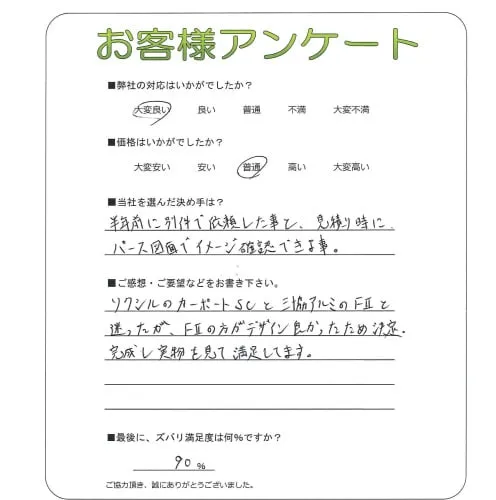 お客様アンケート
■弊社の対応はいかがでしたか？
大変良い 良い 普通 不満 大変不満
■価格はいかがでしたか？
大変安い 安い 普通 高い 大変高い
■当社を選んだ決め手は？
半年前に別件で依頼した事と、見積り時に
パース図面でイメージ確認できる事。
■ご感想・ご要望などをお書き下さい。
リクシルのカーポートSCと三協アルミのFⅡと
迷ったが、FⅡの方がデザイン良かったため決定。
完成し実物を見て満足してます。
■最後に、ズバリ満足度は何%ですか？
90 %
ご協力頂き、誠にありがとうございました。